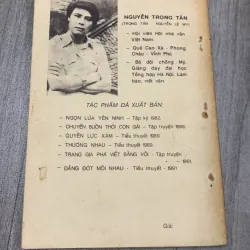 NGUYỄN TRỌNG TÂN
(TRỌNG TÂN NGUYỄN LÊ MY)
- Hội viên Hội nhà văn
Việt Nam.
- Quê Cao Xá - Phong
Châu - Vĩnh Phú
- Bộ đội chống Mỹ.
Giảng dạy đại học
Tổng hợp Hà Nội. Làm
báo, viết văn.
TÁC PHẨM ĐÃ XUẤT BẢN:
- NGỌN LÚA YÊN NINH - Tập ký 1982.
- CHUYẾN BUÔN THỜI CON GÁI - Tập truyện 1989.
- QUYỀN LỰC XÁM - Tiểu thuyết 1989.
- THƯƠNG NHAU - Tiểu thuyết 1989.
- TRANG GIA PHẢ VIẾT BẰNG VÔI - Tập truyện
- 1991.
- ĐẰNG ĐÓT MỒI NHAU - Tiểu thuyết - 1991
Giá: